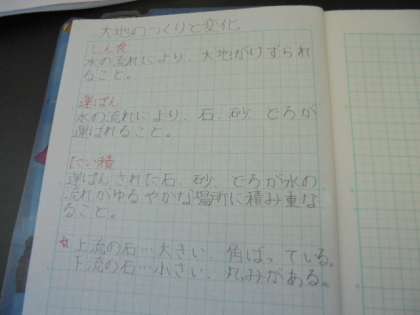 大地のつくりと変化
しん食
水の流れにより、大地がけずられ
ること。
運ぱん
水の流れにより、石、砂、どろが
運ばれること。
たい積
運ぱんされた石、砂、どろが水の
流れがゆるやかな場所に積み重な
ること。
☆上流の石…大きい、角ばっている。
下流の石…小さい、丸みがある。